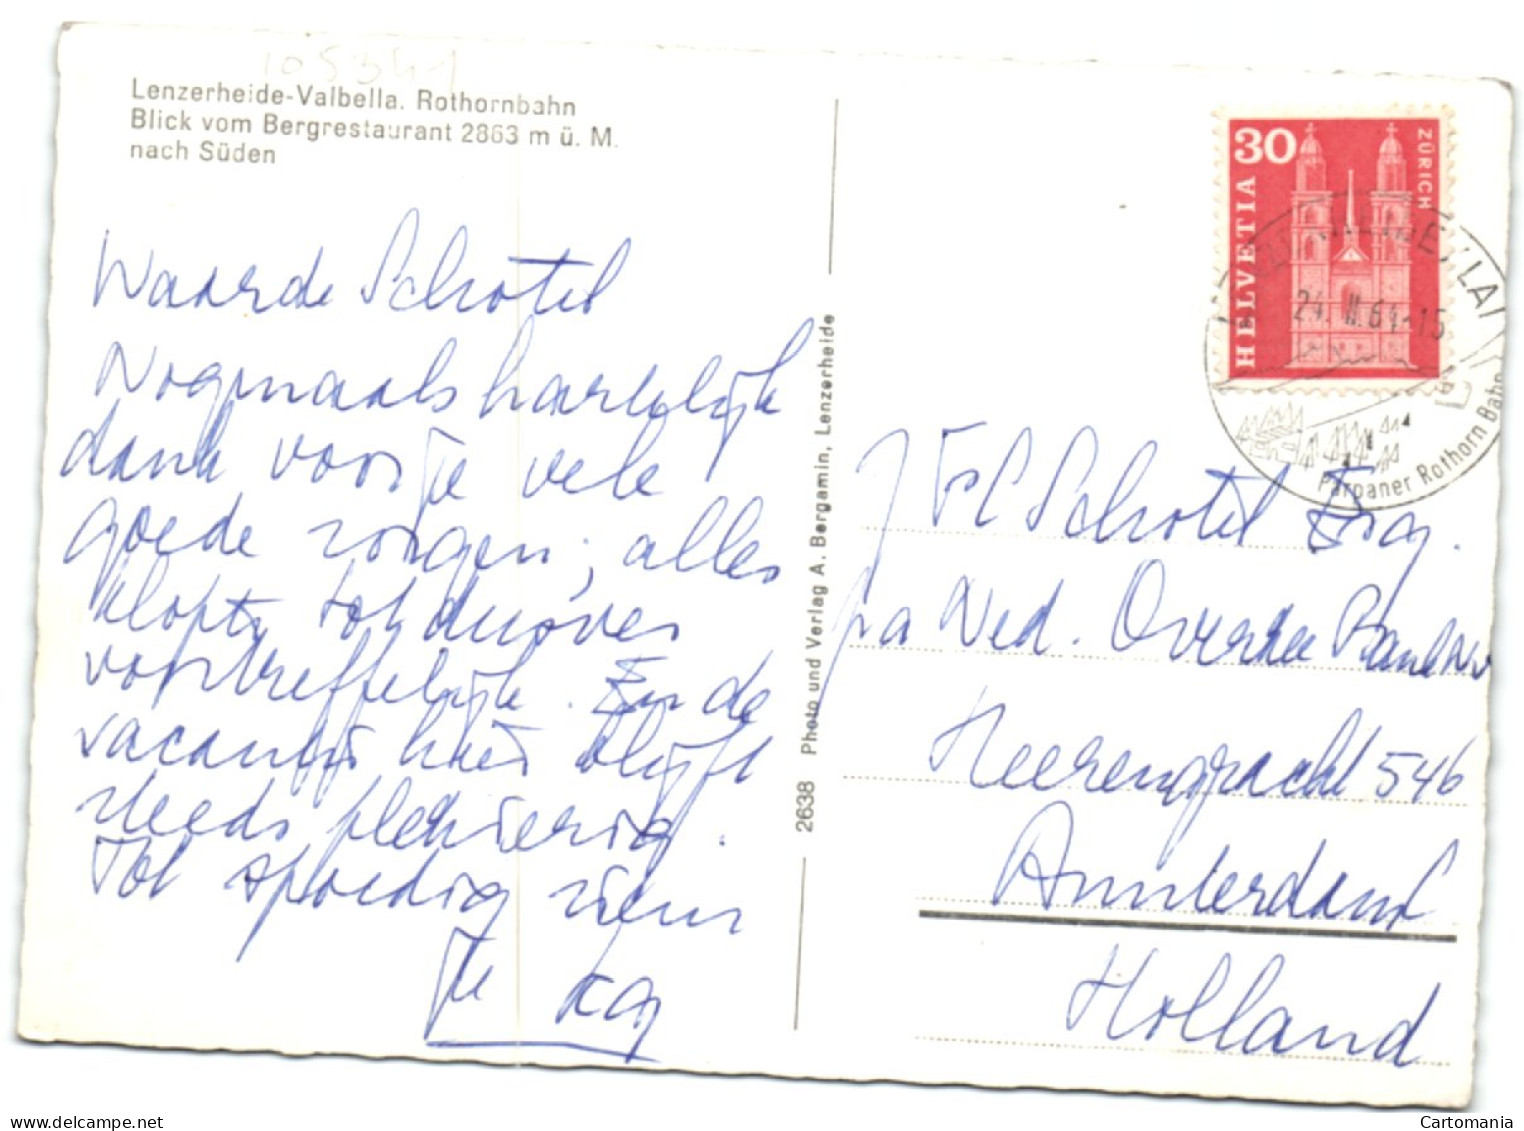 105341
Lenzerheide-Valbella. Rothornbahn
Blick vom Bergrestaurant 2863 m ü. M.
nach Süden
Waarde Schotel
Nogmaals hartelijk
dank voor je vele
goede zorgen; alles
klopt tot dusver
voortreffelijk. En de
vacantie hier blijft
steeds plezierig.
Tot spoedig ziens
Je
2638 Photo und Verlag A. Bergamin, Lenzerheide
HELVETIA 30 ZÜRICH
LAI
24. II. 64-15
Parpaner Rothorn Bahn
Schotel Esq.
pa Ned. Overzee Bank NV
Heerengracht 546
Amsterdam
Holland
Cartomania
www.delcampe.net